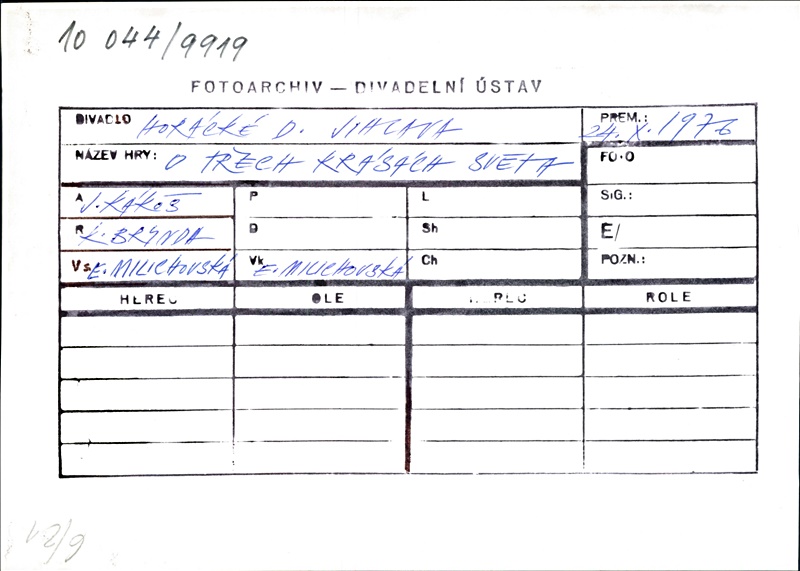 10 044/9919
FOTOARCHIV — DIVADELNÍ ÚSTAV
DIVADLO HORÁCKÉ D. JIHLAVA PREM.: 24. X. 1976
NÁZEV HRY: O TŘECH KRÁSÁCH SVĚTA FOTO
A J. KÁKOŠ P L SIG.:
R K. BRYNDA D Sh E/
Vs E. MILICHOVSKÁ Vk E. MILICHOVSKÁ Ch POZN.:
HEREC OLE ROLE
12/9